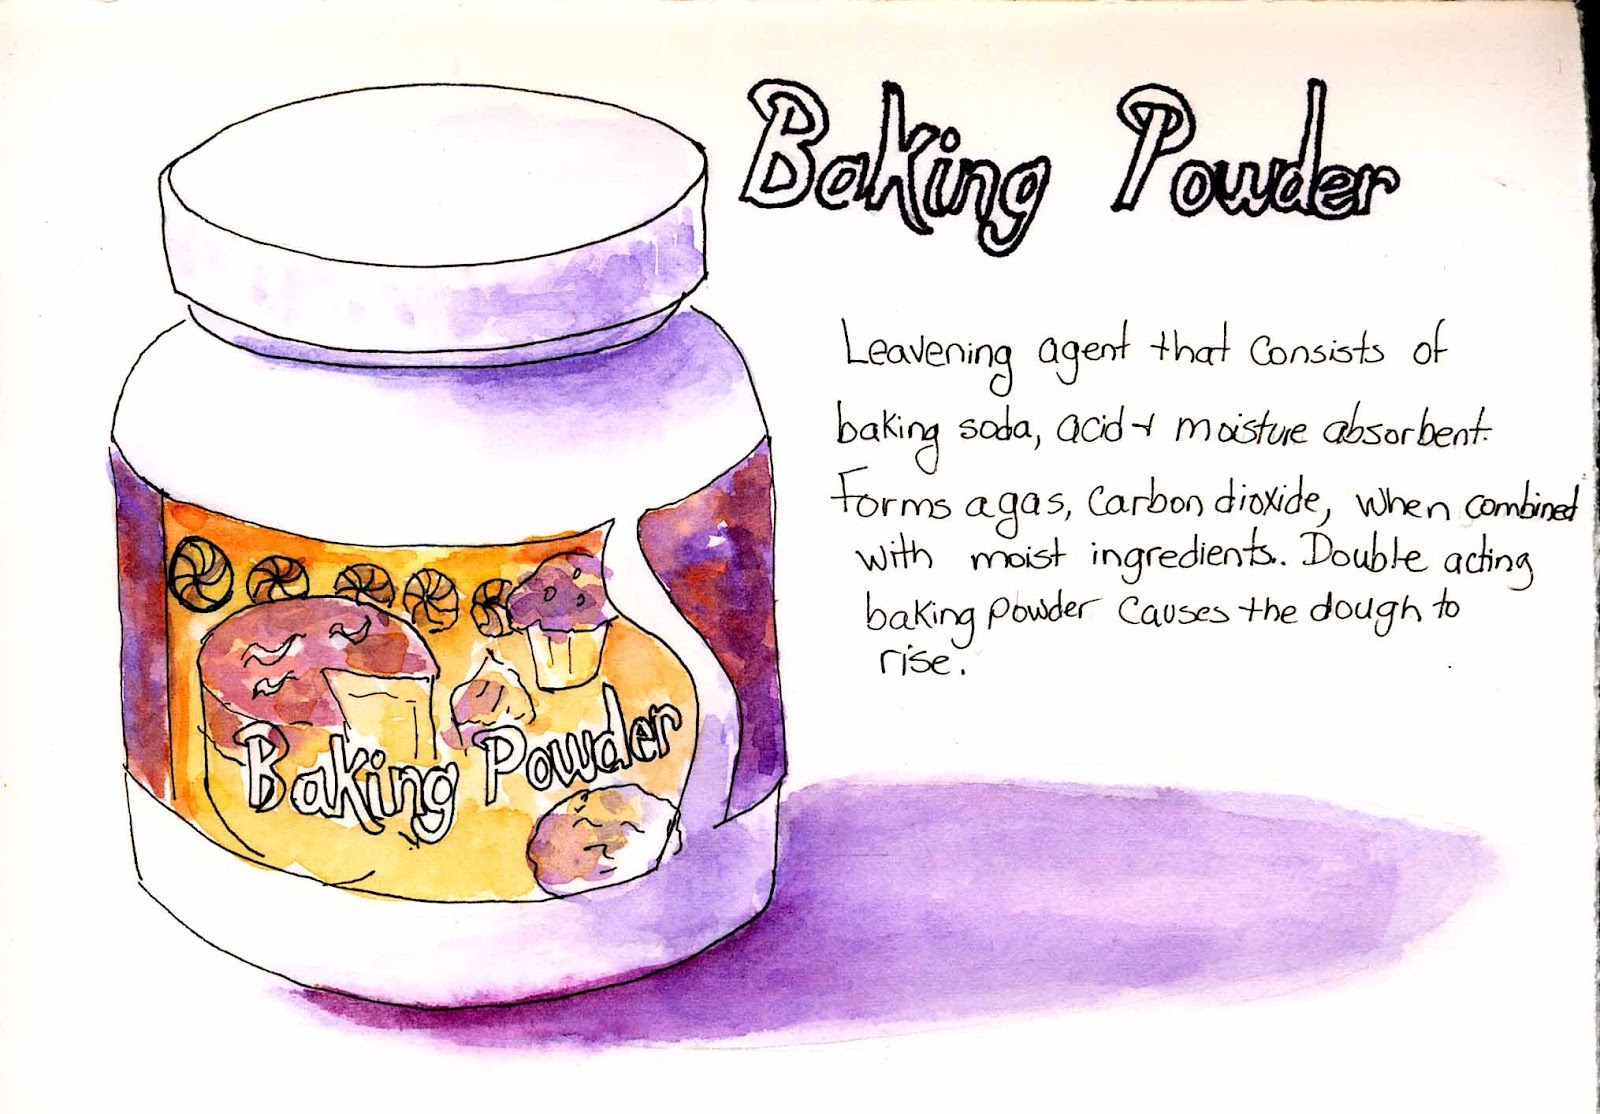 Baking Powder
Leavening agent that consists of
baking soda, acid + moisture absorbent.
Forms a gas, carbon dioxide, when combined
with moist ingredients. Double acting
baking powder causes the dough to
rise.
Baking Powder